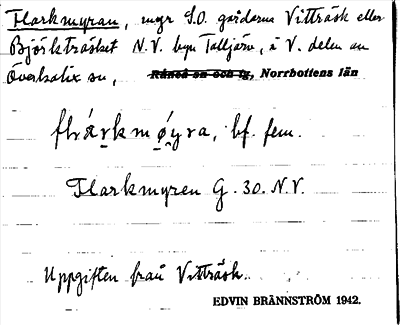 Flarkmyran, myr S.O. gårdarna Vitträsk eller
Björkträsket N.V. byn Talljärv, i V. delen av
Överkalix sn, Råneå sn och tg, Norrbottens län
Flarkmyren G. 30. N.V.
Uppgiften från Vitträsk.
EDVIN BRÄNNSTRÖM 1942.